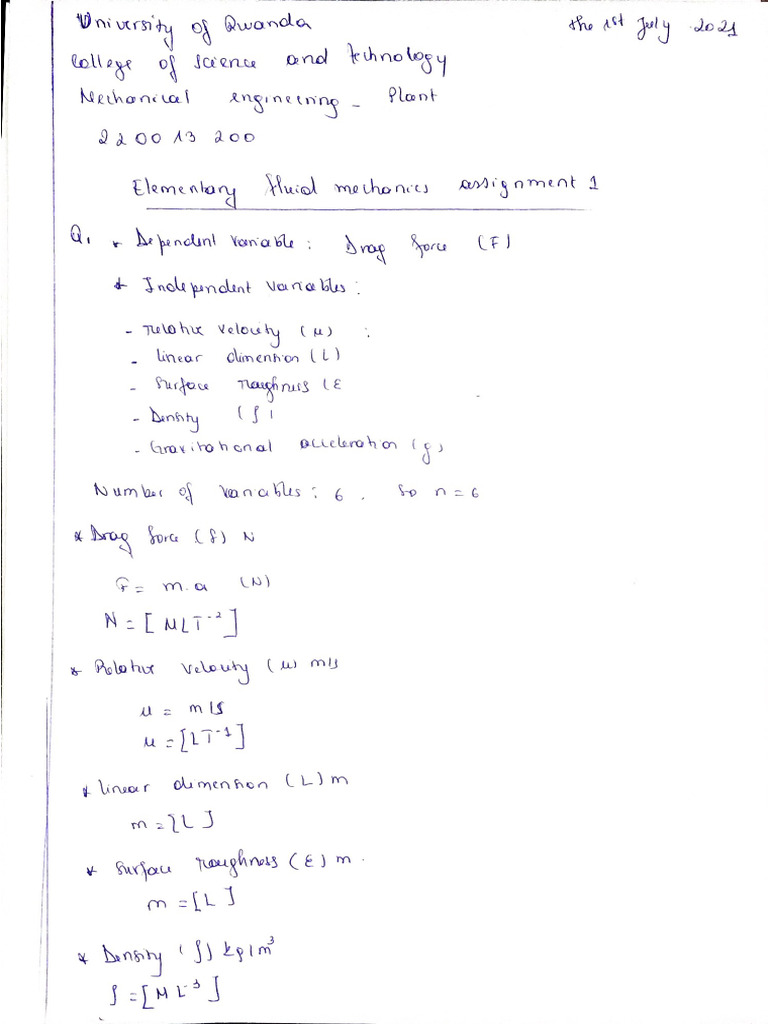 University of Rwanda
the 1st July 2021
College of science and technology
Mechanical engineering - Plant
2200 13 200
Elementary fluid mechanics assignment 1
Q1 * Dependent variable : Drag force (F)
* Independent variables :
- Relative velocity (u) :
- linear dimention (L)
- Surface roughness (ε
- Density (ρ)
- Gravitational acceleration (g)
Number of variables : 6 , so n = 6
* Drag force (f) N
F = m.a (N)
N = [MLT⁻²]
* Relative velocity (u) m/s
u = m/s
u = [LT⁻¹]
* linear dimension (L) m
m = [L]
* Surface roughness (ε) m.
m = [L]
* Density (ρ) kg/m³
ρ = [ML⁻³]